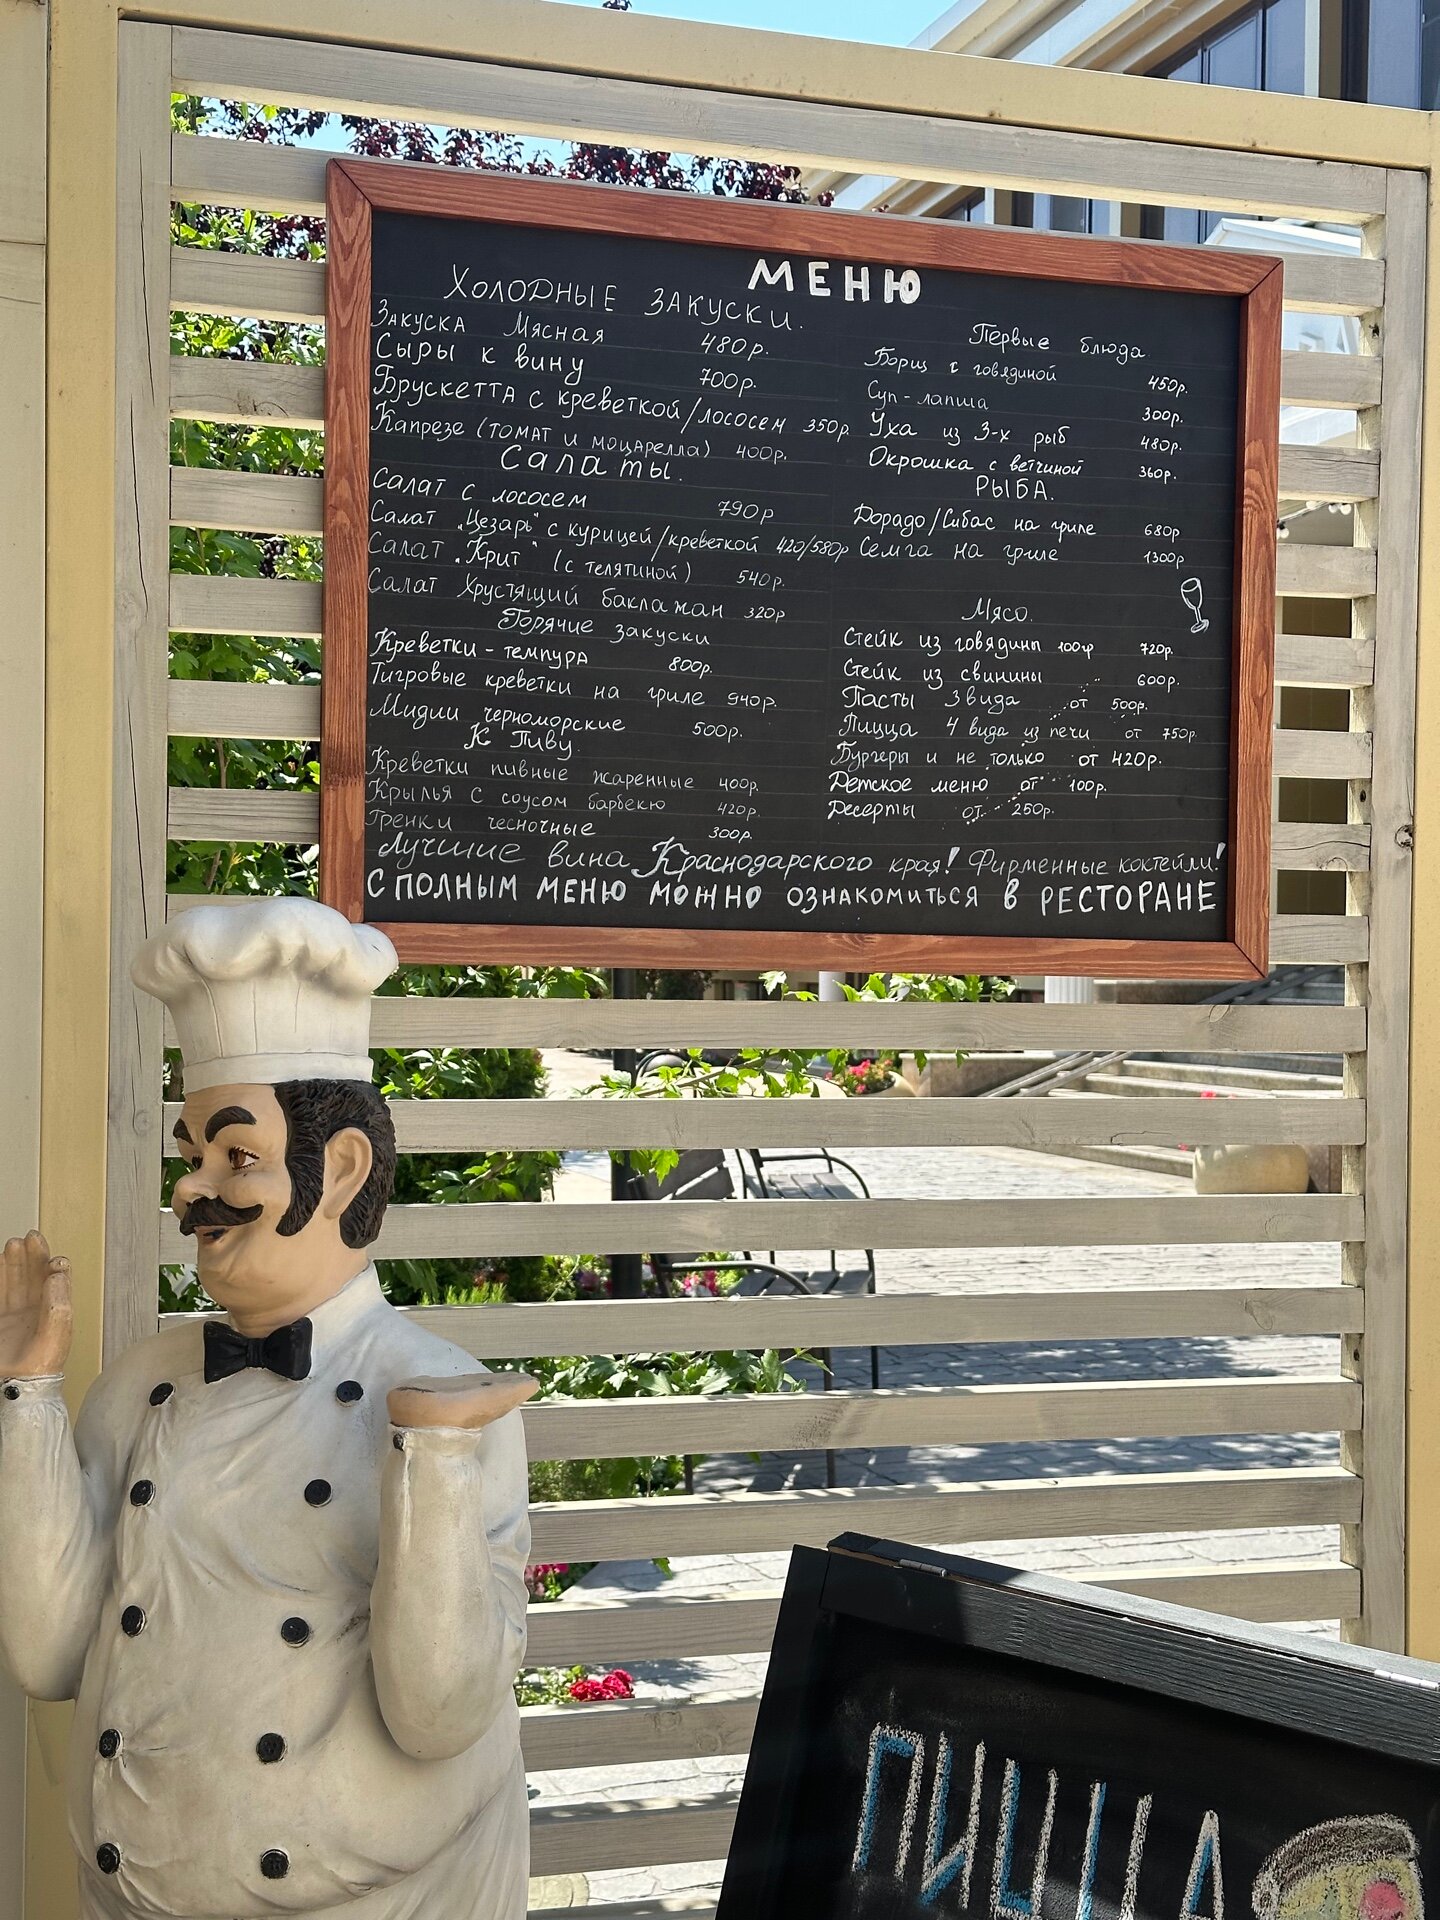 МЕНЮ
Холодные закуски.
Закуска Мясная 480р.
Сыры к вину 700р.
Брускетта с креветкой/лососем 350р
Капрезе (томат и моцарелла) 400р.
Салаты.
Салат с лососем 790р
Салат „Цезарь" с курицей/креветкой 420/580р
Салат „Крит" (с телятиной) 540р.
Салат Хрустящий баклажан 320р
Горячие закуски
Креветки-темпура 800р.
Тигровые креветки на гриле 940р.
Мидии черноморские 500р.
К Пиву.
Креветки пивные жаренные 400р.
Крылья с соусом барбекю 420р.
Гренки чесночные 300р.
Первые блюда
Борщ с говядиной 450р.
Суп-лапша 300р.
Уха из 3-х рыб 480р.
Окрошка с ветчиной 360р.
РЫБА.
Дорадо/Сибас на гриле 680р
Семга на гриле 1300р
Мясо.
Стейк из говядины 100гр 720р.
Стейк из свинины 600р.
Пасты 3 вида от 500р.
Пицца 4 вида из печи от 750р.
Бургеры и не только от 420р.
Детское меню от 100р.
Десерты от 250р.
Лучшие вина Краснодарского края! Фирменные коктейли!
С ПОЛНЫМ МЕНЮ МОЖНО ОЗНАКОМИТЬСЯ В РЕСТОРАНЕ
ПИЦЦА